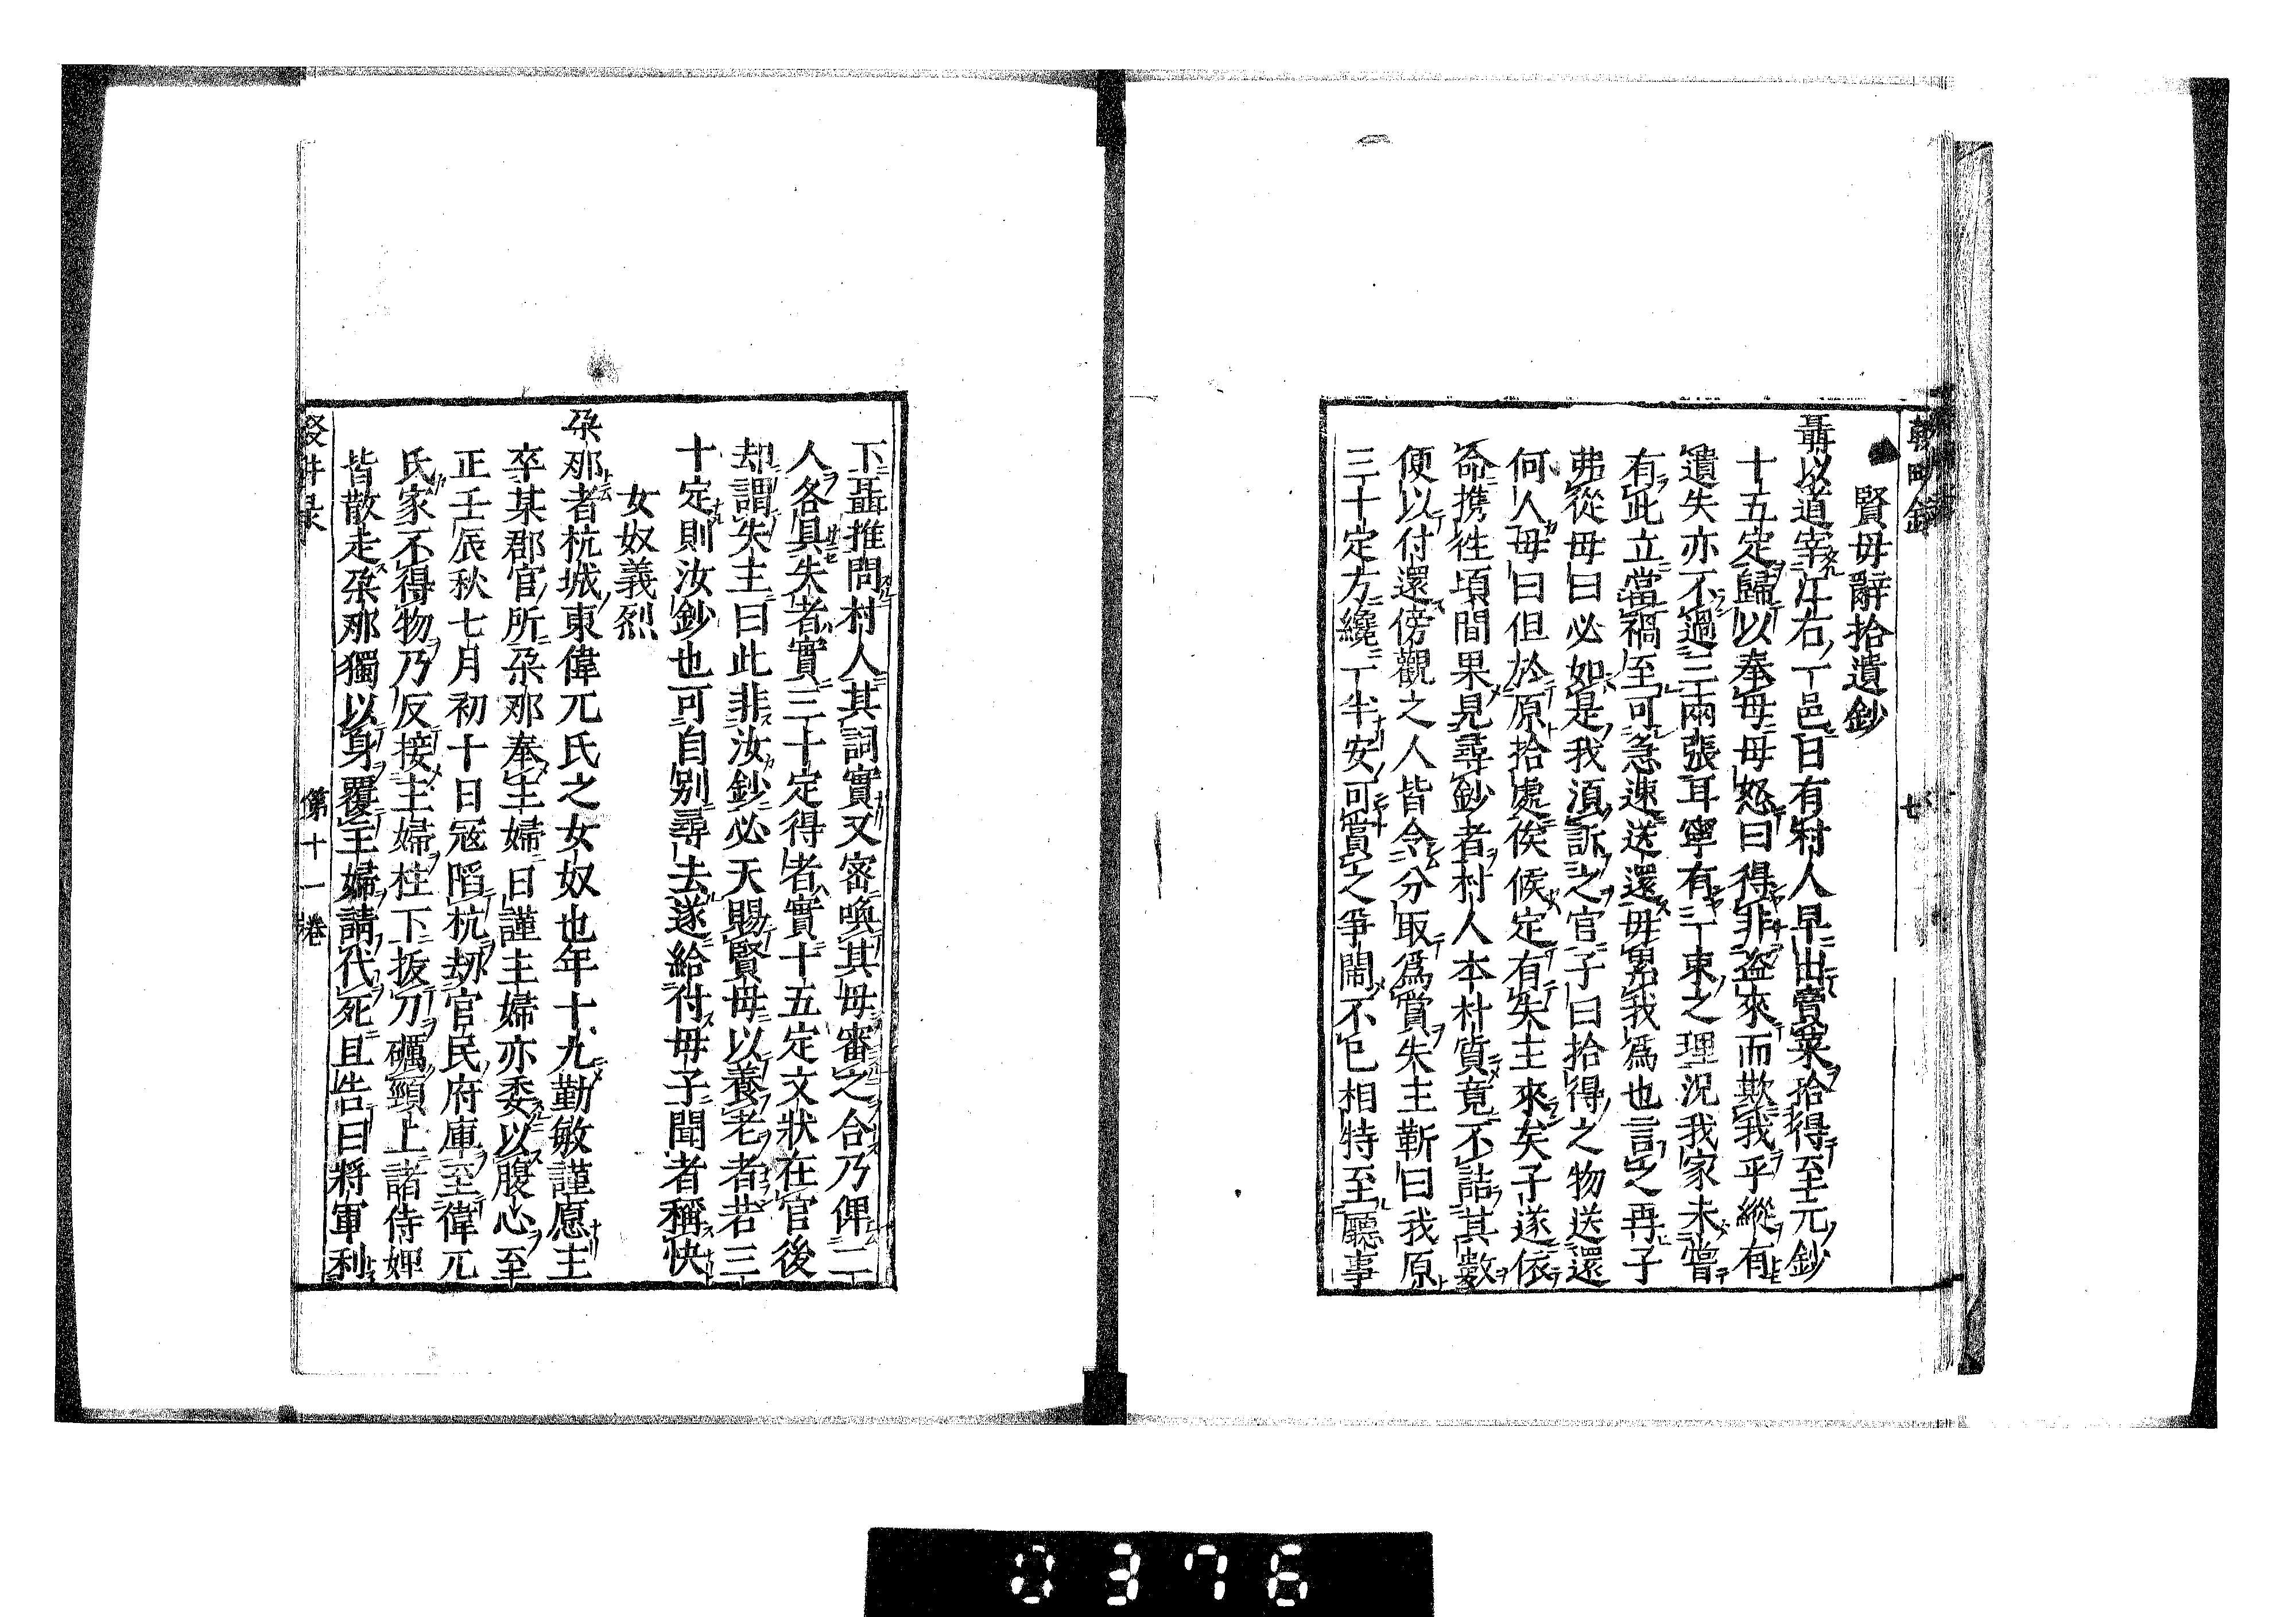 賢毋辭拾遺鈔
聶以道宰江右一邑日有村人早出賣菜拾得至元鈔
十五定歸以奉毋毋怒曰得非盗來而欺我乎縱有
遺失亦不過三兩張耳寧有一束之理況我家未嘗
有此立當禍至可急速送還毋累我爲也言之再子
弗從毋曰必如是我須訴之官子曰拾得之物送還
何人毋曰但於原拾處俟候定有失主來矣子遂依
命携徃頃間果見尋鈔者村人本朴質竟不詰其數
便以付還傍觀之人皆令分取爲賞失主靳曰我原
三十定方纔一半安可賞之爭鬧不已相持至廳事
七
下聶推問村人其詞實又密喚其毋審之合乃俾二
人各具失者實三十定得者實十五定文狀在官後
却謂失主曰此非汝鈔必天賜賢毋以養老者若三
十定則汝鈔也可自别尋去遂給付毋子聞者稱快
女奴義烈
朶那者杭城東偉元氏之女奴也年十九勤敏謹愿主
卒某郡官所朶那奉主婦日謹主婦亦委以腹心至
正壬辰秋七月初十日冦陷杭刼官民府庫至偉元
氏家不得物乃反接主婦柱下扳刀礪頸上諸侍婢
皆散走朶那獨以身覆主婦請代死且告曰將軍利
第十一卷
0376